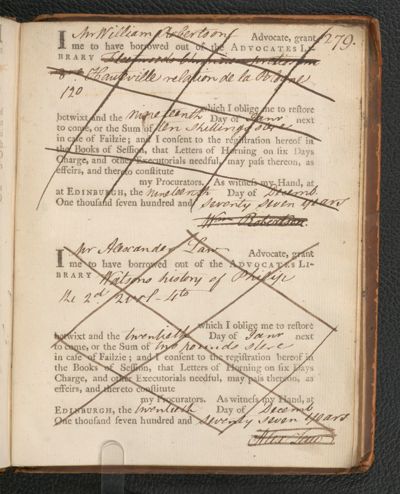 279.
I Mr William Robertson Advocate, grant
me to have borrowed out of the ADVOCATES LI-
BRARY
8vo Chanteville relation de la
120
which I oblige me to restore
betwixt and the nineteenth Day of Janr next
to come, or the Sum of ten shillings
in case of Failzie; and I consent to the registration hereof in
the Books of Session, that Letters of Horning on six Days
Charge, and other Executorials needful, may pass thereon, as
effeirs, and thereto constitute
my Procurators. As witness my Hand, at
at EDINBURGH, the nineteenth Day of Decemb
One thousand seven hundred and seventy seven years
Wm Robertson
I Mr Alexander Law Advocate, grant
me to have borrowed out of the ADVOCATES LI-
BRARY Watsons history of Philip
the 2d 2 vol- 4to
which I oblige me to restore
betwixt and the twentieth Day of Janr next
to come, or the Sum of two pounds
in case of Failzie; and I consent to the registration hereof in
the Books of Session, that Letters of Horning on six Days
Charge, and other Executorials needful, may pass thereon, as
effeirs, and thereto constitute
my Procurators. As witness my Hand, at
EDINBURGH, the twentieth Day of Decemb
One thousand seven hundred and seventy seven years
Alex Law